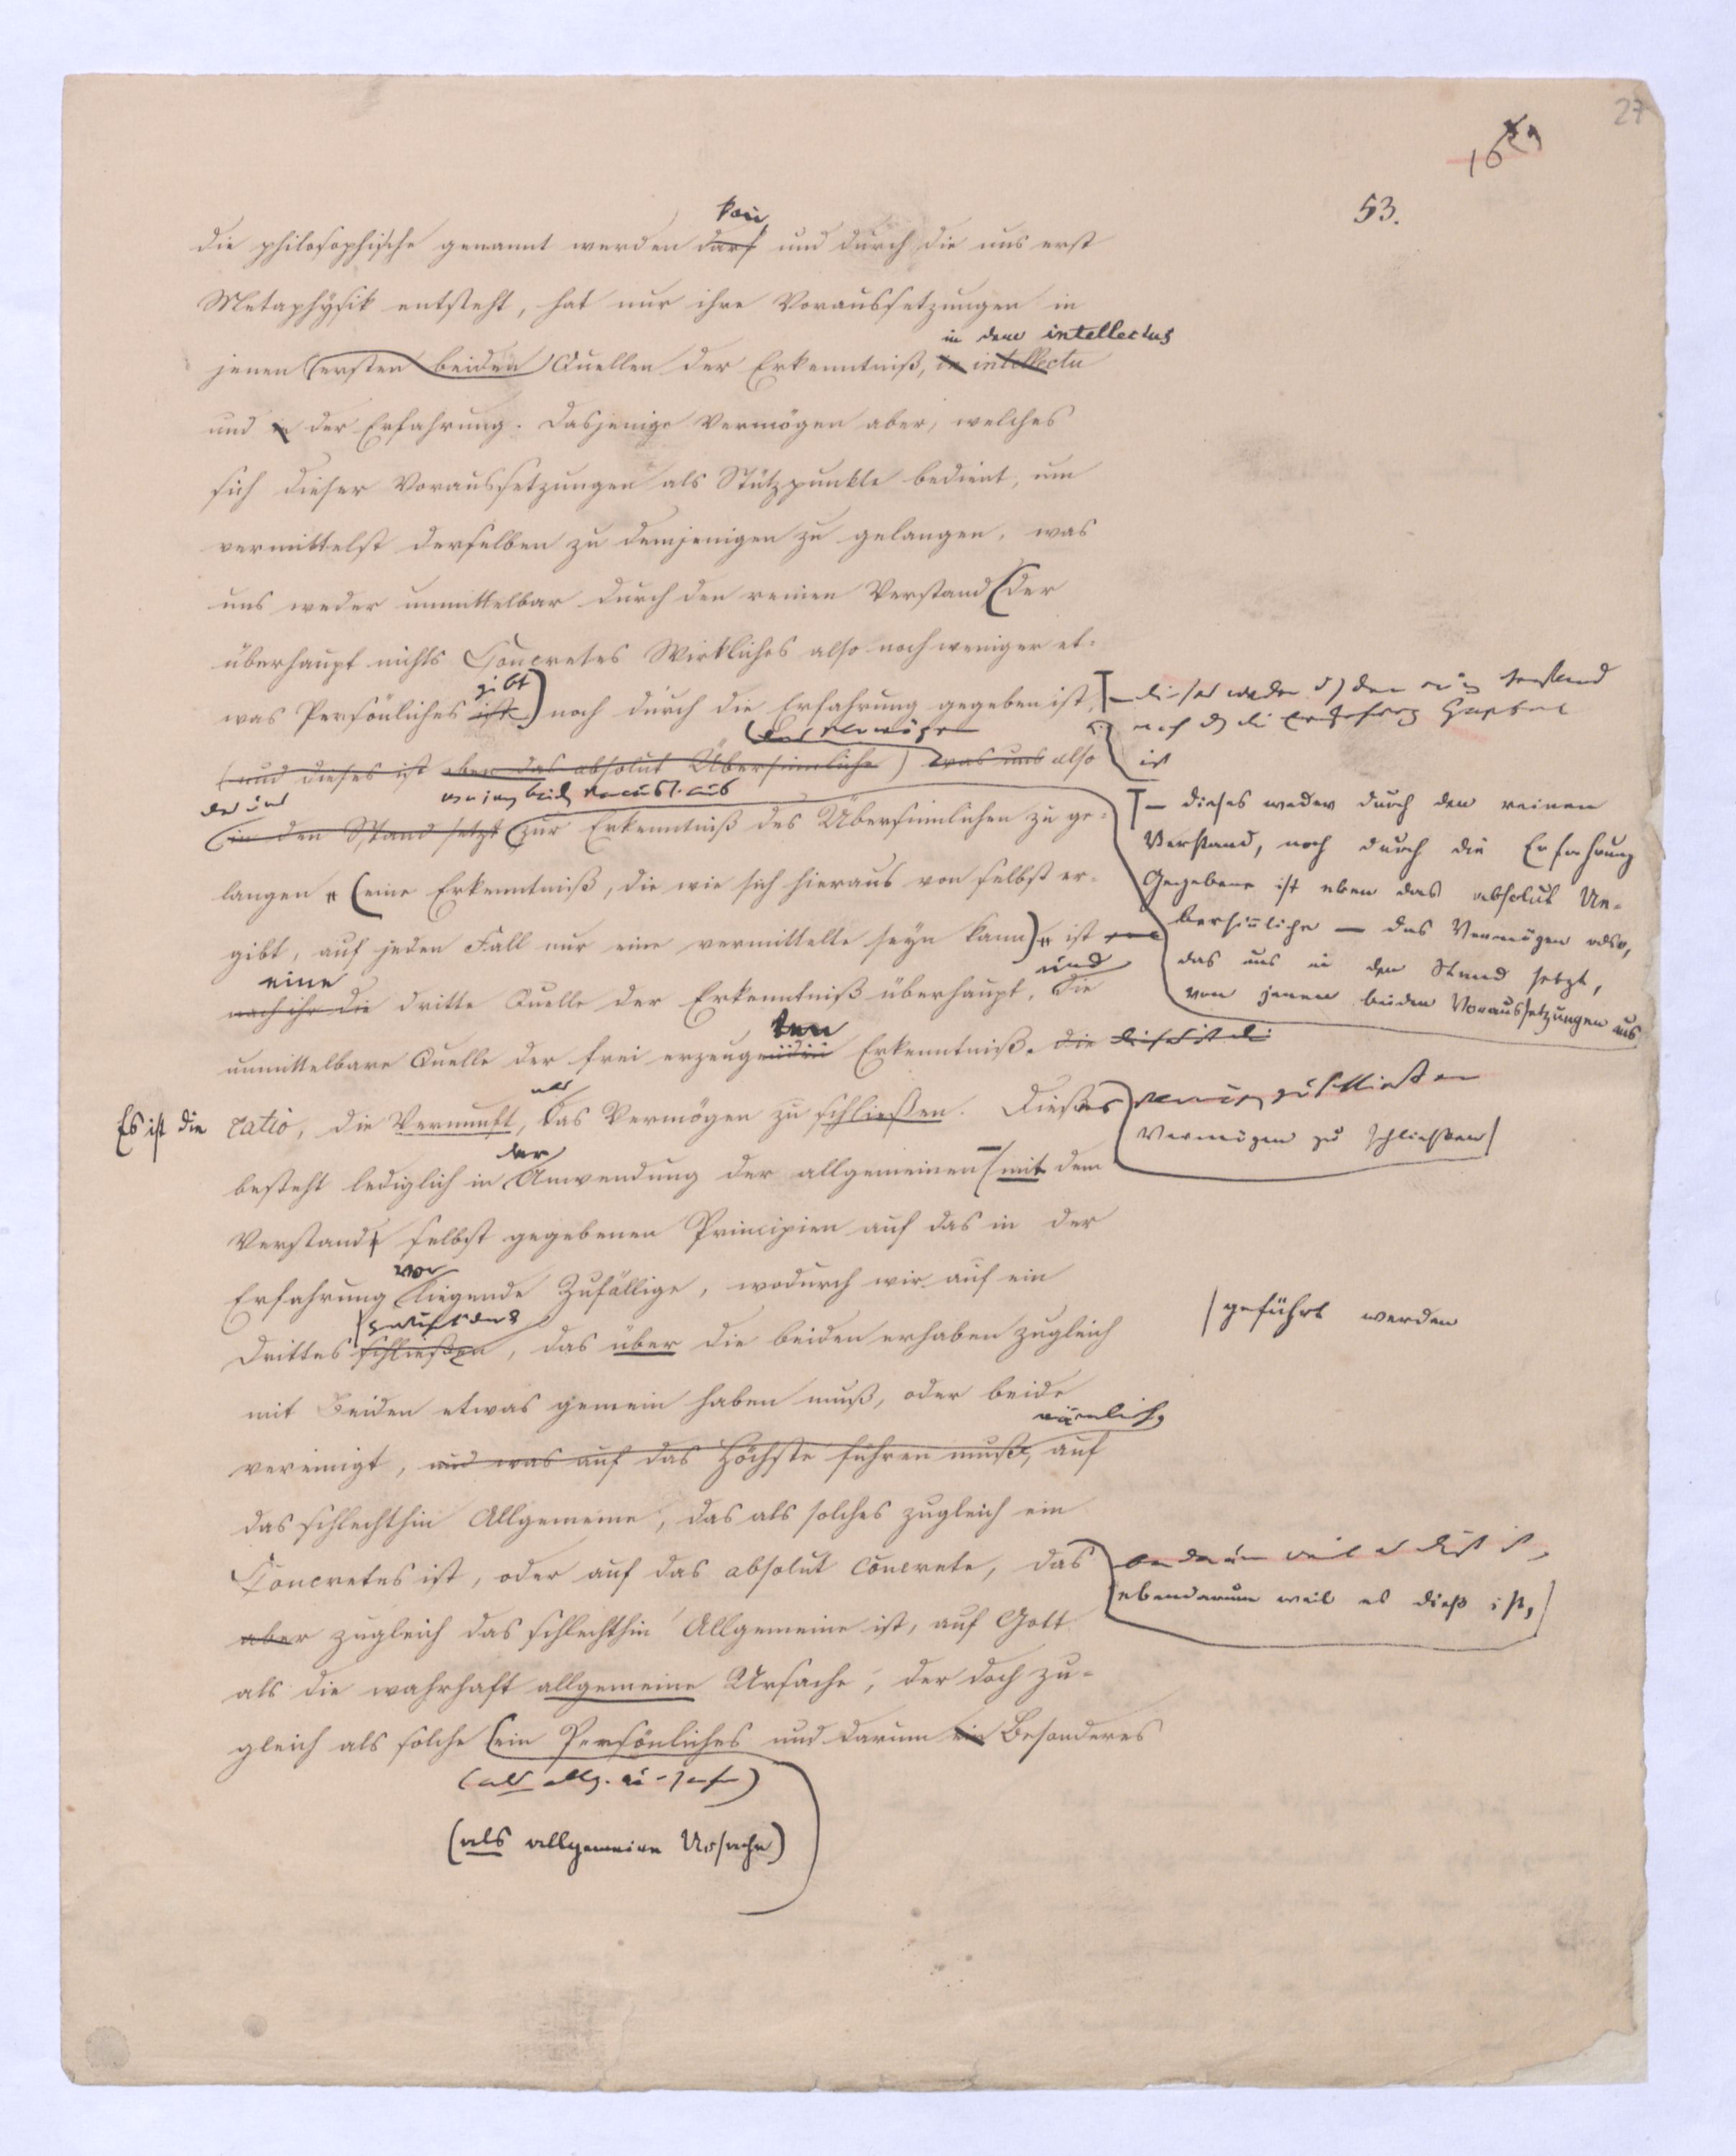 27
53.
kann
die philosophische genannt werden darf und durch die uns erst
Metaphysik entsteht, hat nur ihre Voraussetzungen in
in dem intellectus
jenen (ersten beiden) Quellen der Erkenntniß, in intellectu
und in der Erfahrung. Dasjenige Vermögen aber, welches
sich dieser Voraussetzungen als Stützpunkte bedient, um
vermittelst derselben zu demjenigen zu gelangen, was
uns weder unmittelbar durch den reinen Verstand (der
überhaupt nichts Concretes Wirkliches also noch weniger et-
gibt
was Persönliches ist) noch durch die Erfahrung gegeben ist,
das Vermögen
(und dieses ist eben das absolut Übersinnliche) was uns also
das uns
von jenen beiden Voraussetz. aus
in den Stand setzt zur Erkenntniß des Übersinnlichen zu ge-
– dieses weder durch den reinen
Verstand, noch durch die Erfahrung
Gegebene ist eben das absolut Ue-
bersinnliche – das Vermögen also,
das uns in den Stand setzt,
von jenen beiden Voraussetzungen aus
langen (eine Erkenntniß, die wie sich hieraus von selbst er-
gibt, auf jeden Fall nur eine vermittelte seyn kann) ist
eine
und
nach ihr die dritte Quelle der Erkenntniß überhaupt, die
ten
unmittelbare Quelle der frei erzeug Erkenntniß. die
als
Es ist die ratio, die Vernunft, das Vermögen zu schließen. Dieses
Vermögen zu schließen
der
besteht lediglich in Anwendung der allgemeinen (mit dem
Verstand selbst gegebenen Principien auf das in der
vor
Erfahrung liegende Zufällige, wodurch wir auf ein
geführt werden
Drittes schließen, das über die beiden erhaben zugleich
mit Beiden etwas gemein haben muß, oder beide
nämlich
vereinigt, und was auf das Höchste führen muß, auf
das schlechthin Allgemeine, das als solches zugleich ein
Concretes ist, oder auf das absolut Concrete, das
ebendarum weil es dieß ist,
aber zugleich das schlechthin Allgemeine ist, auf Gott
als die wahrhaft allgemeine Ursache, der doch zu-
gleich als solche (ein Persönliches und darum ein Besonderes
(als allg. Ursache)
(als allgemeine Ursache)